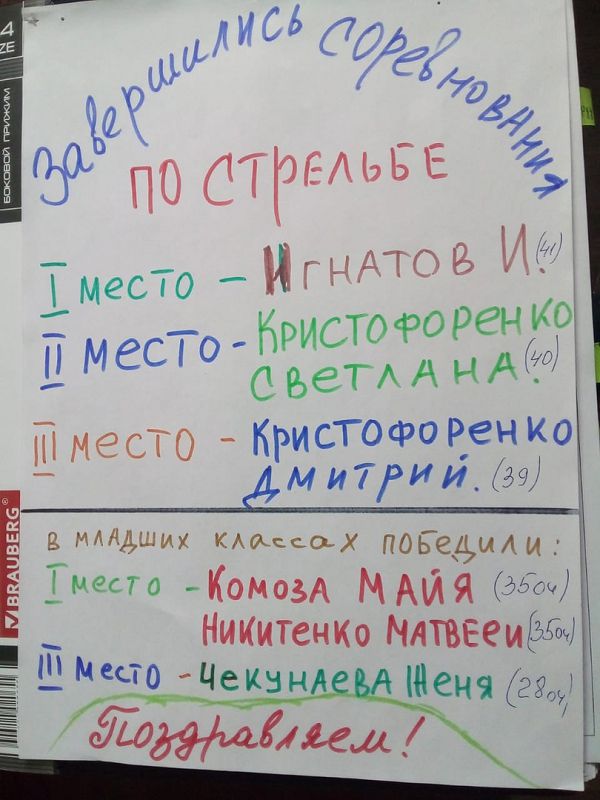 4
ZE
БОКОВОЙ ПРИЖИМ
BRAUBERG®
Завершились соревнования
по стрельбе
I место - Игнатов И. (41)
II место - Кристофоренко
Светлана. (40)
III место - Кристофоренко
Дмитрий. (39)
в младших классах победили:
I место - Комоза Майя (35оч)
Никитенко Матвей (35оч)
III место - Чекунаева Женя (28оч)
Поздравляем!